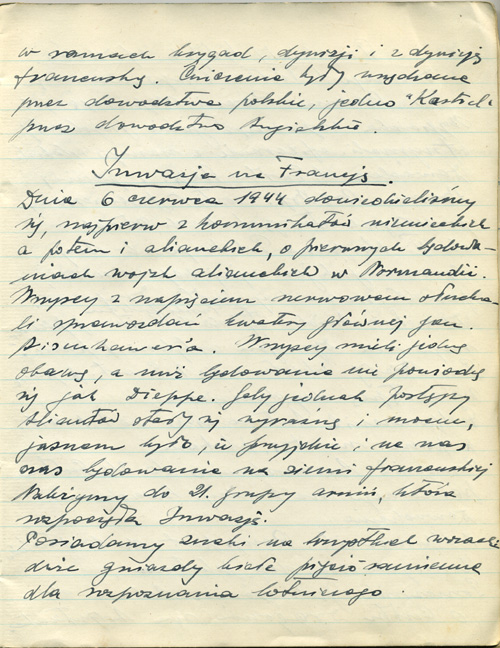 w ramach brygad, dywizji i z dywizją
francuską. Ćwiczenia były urządzane
przez dowództwa polskie, jedno "Kastiel"
przez dowództwo angielskie.
Inwazja na Francję.
Dnia 6 czerwca 1944 dowiedzieliśmy
się, najpierw z komunikatów niemieckich
a potem i alianckich, o pierwszych lądowa-
niach wojsk alianckich w Normandii.
Wszyscy z napięciem nerwowem słucha-
li sprawozdań kwatery głównej gen.
Eisenhowera. Wszyscy mieli jedną
obawę, a nuż lądowanie nie powiedzie
się jak Dieppe. Gdy jednak postępy
Aliantów stały się wyraźne i mocne,
jasnem było, że przyjdzie i na nas
czas lądowania na ziemi francuskiej
Należymy do 21. grupy armii, która
rozpoczęła Inwazję.
Posiadamy znaki na wszystkich wozach
duże gwiazdy białe pięcio ramienne
dla rozpoznania lotniczego.